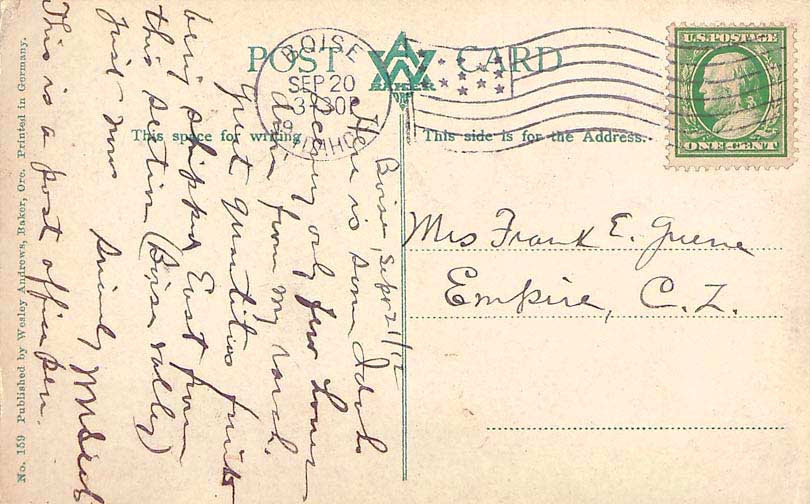 POST CARD
BAKER
BOISE
SEP 20
3-30P
IDAHO
U.S. POSTAGE
ONE CENT
This space for writing
This side is for the Address.
Mrs Frank E. Greene
Empire, C. Z.
Boise, Sept 21/12
Here is some Idaho
scenery only few hours
drive from my ranch.
Great quantities fruit
being shipped East from
this section (Boise valley)
just now
Sincerely
This is a post office pen.
No. 159 Published by Wesley Andrews, Baker, Ore. Printed in Germany.